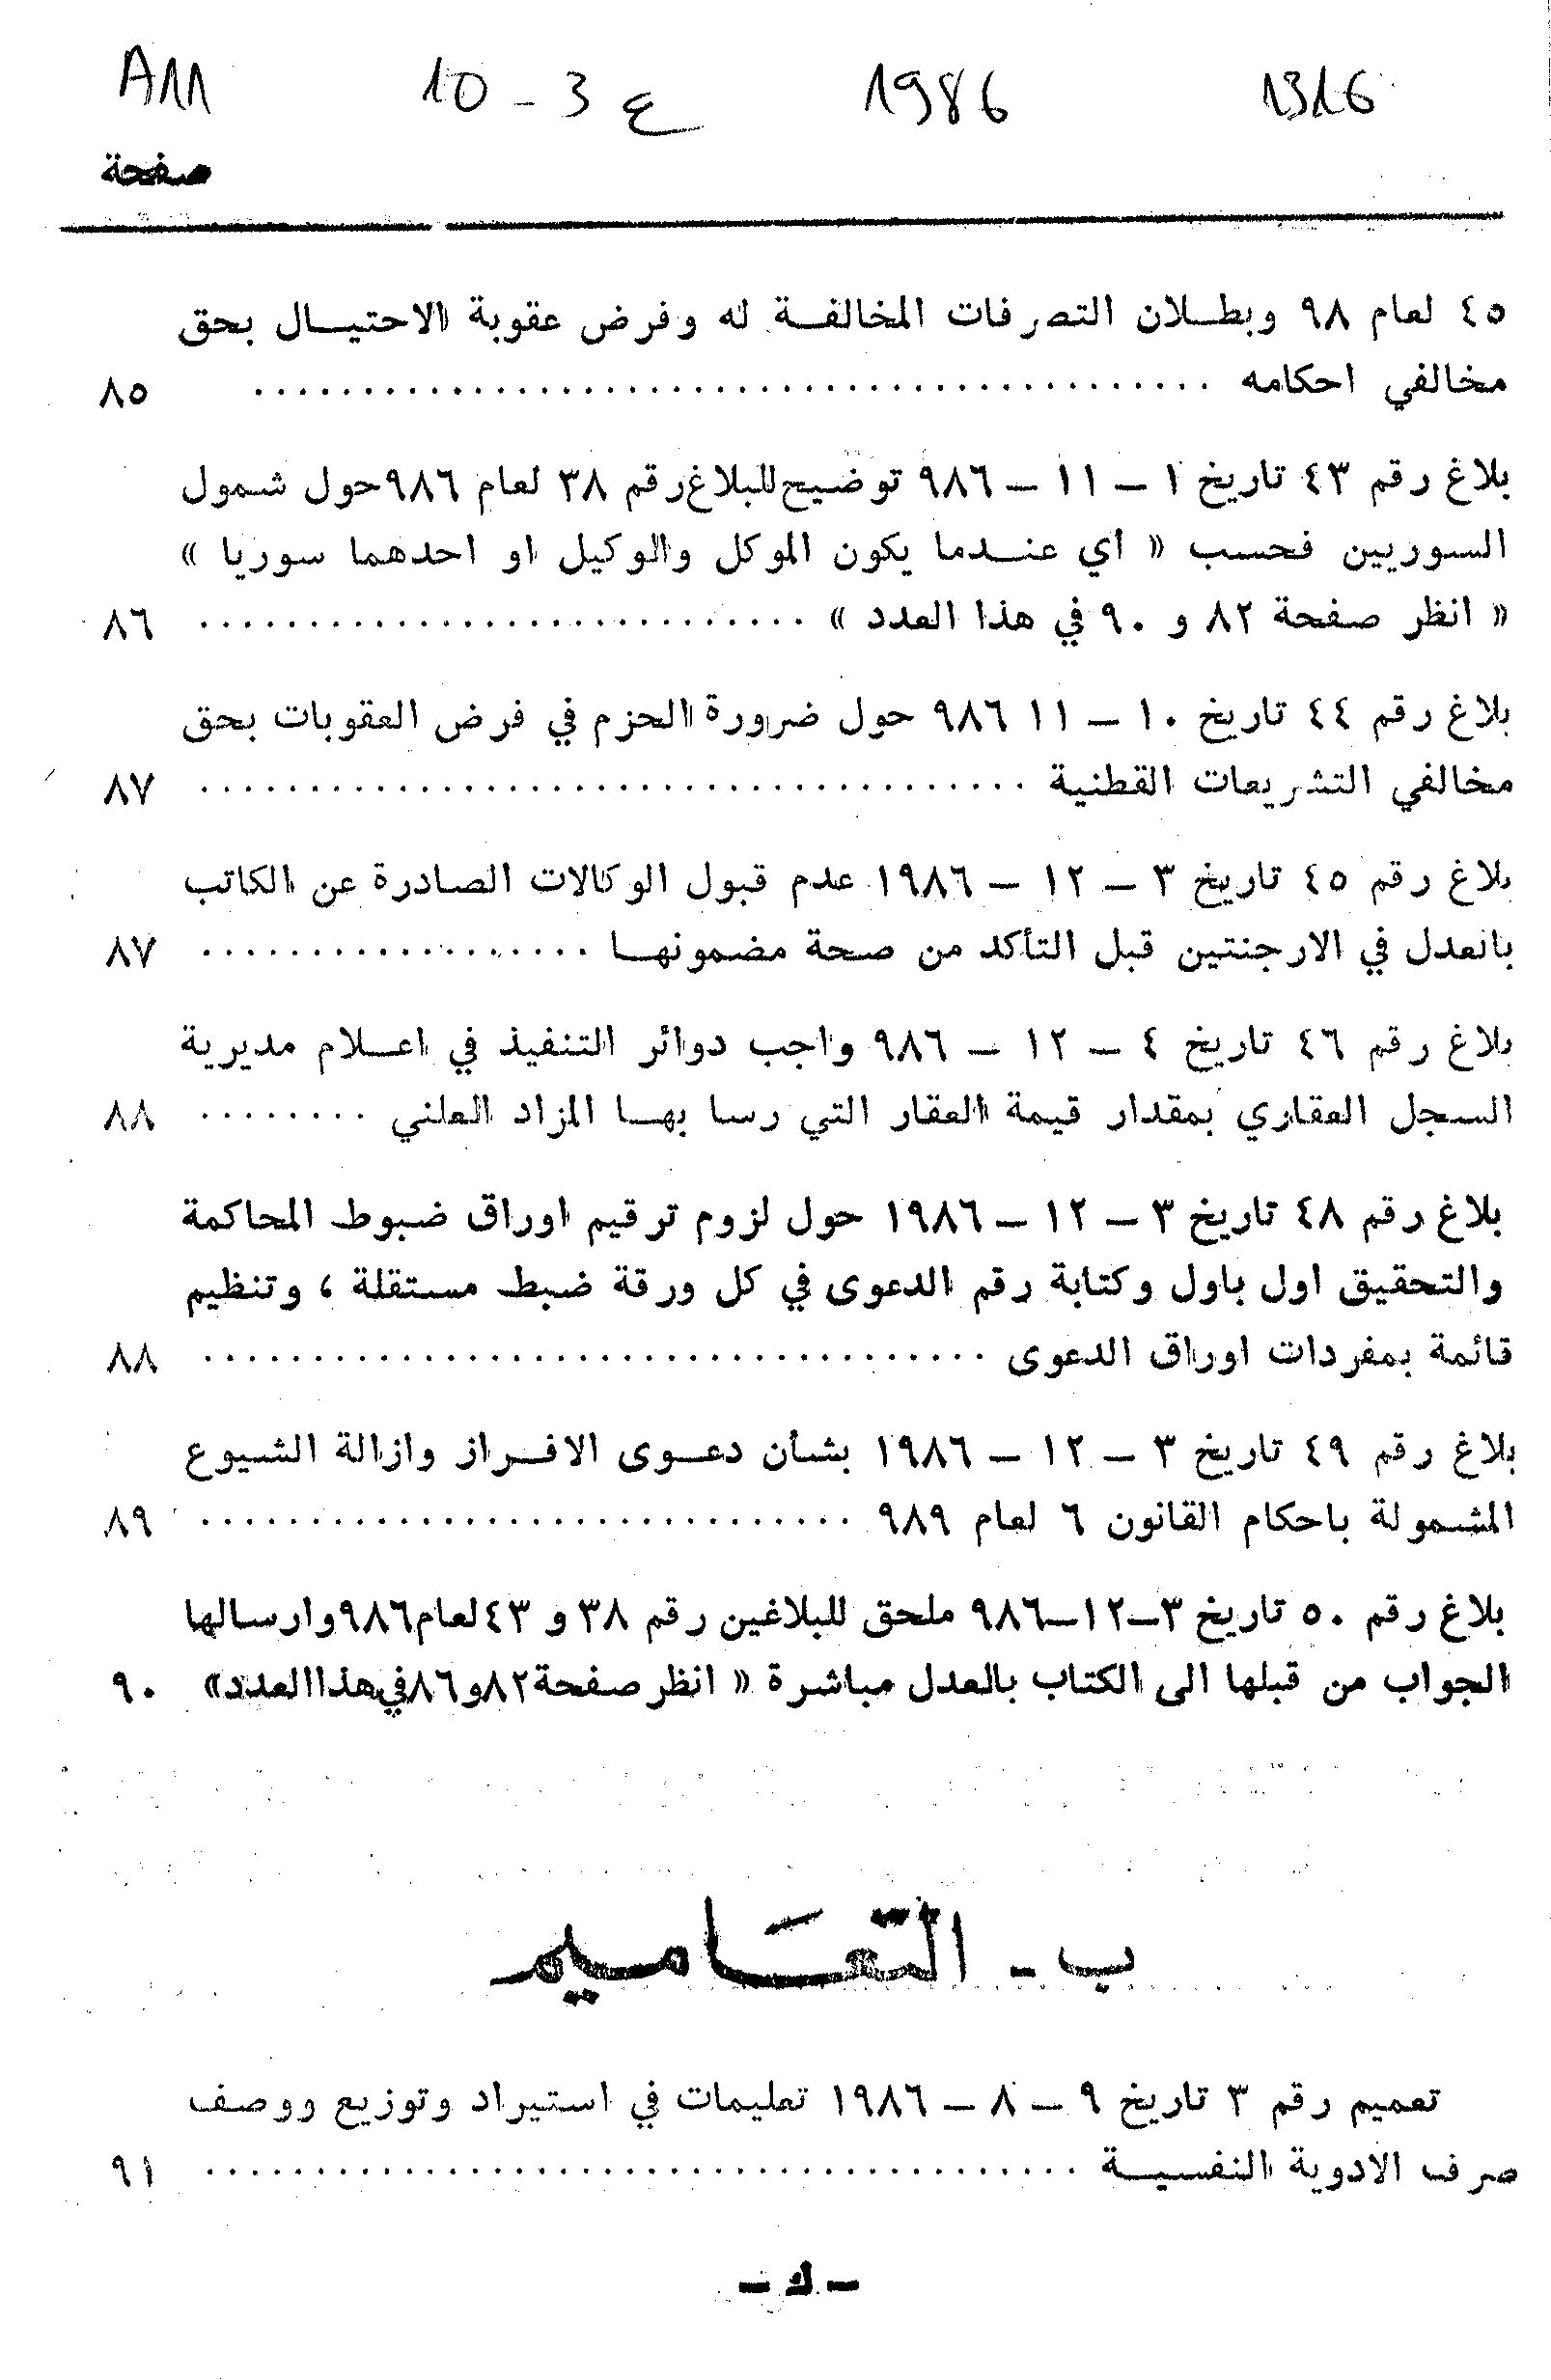 1316 1986 ع 3 - 10 A11
صفحة
٤٥ لعام ٩٨ وبطلان التصرفات المخالفة له وفرض عقوبة الاحتيال بحق
مخالفي احكامه ........................................ ٨٥
بلاغ رقم ٤٣ تاريخ ١ – ١١ – ٩٨٦ توضيح للبلاغ رقم ٣٨ لعام ٩٨٦ حول شمول
السوريين فحسب « أي عندما يكون الموكل والوكيل او احدهما سوريا »
« انظر صفحة ٨٢ و ٩٠ في هذا العدد » ............................ ٨٦
بلاغ رقم ٤٤ تاريخ ١٠ – ١١ ٩٨٦ حول ضرورة الحزم في فرض العقوبات بحق
مخالفي التشريعات القطنية ...................................... ٨٧
بلاغ رقم ٤٥ تاريخ ٣ – ١٢ – ١٩٨٦ عدم قبول الوكالات الصادرة عن الكاتب
بالعدل في الارجنتين قبل التأكد من صحة مضمونها .................. ٨٧
بلاغ رقم ٤٦ تاريخ ٤ – ١٢ – ٩٨٦ واجب دوائر التنفيذ في اعلام مديرية
السجل العقاري بمقدار قيمة العقار التي رسا بها المزاد العلني ........ ٨٨
بلاغ رقم ٤٨ تاريخ ٣ – ١٢ – ١٩٨٦ حول لزوم ترقيم اوراق ضبوط المحاكمة
والتحقيق اول باول وكتابة رقم الدعوى في كل ورقة ضبط مستقلة ، وتنظيم
قائمة بمفردات اوراق الدعوى .................................... ٨٨
بلاغ رقم ٤٩ تاريخ ٣ – ١٢ – ١٩٨٦ بشأن دعوى الافراز وازالة الشيوع
المشمولة باحكام القانون ٦ لعام ٩٨٩ .............................. ٨٩
بلاغ رقم ٥٠ تاريخ ٣–١٢–٩٨٦ ملحق للبلاغين رقم ٣٨ و ٤٣ لعام ٩٨٦ وارسالها
الجواب من قبلها الى الكتاب بالعدل مباشرة « انظر صفحة ٨٢ و٨٦ في هذا العدد» ٩٠
ب - التعَاميم
تعميم رقم ٣ تاريخ ٩ – ٨ – ١٩٨٦ تعليمات في استيراد وتوزيع ووصف
صرف الادوية النفسية ........................................ ٩١
– ك –